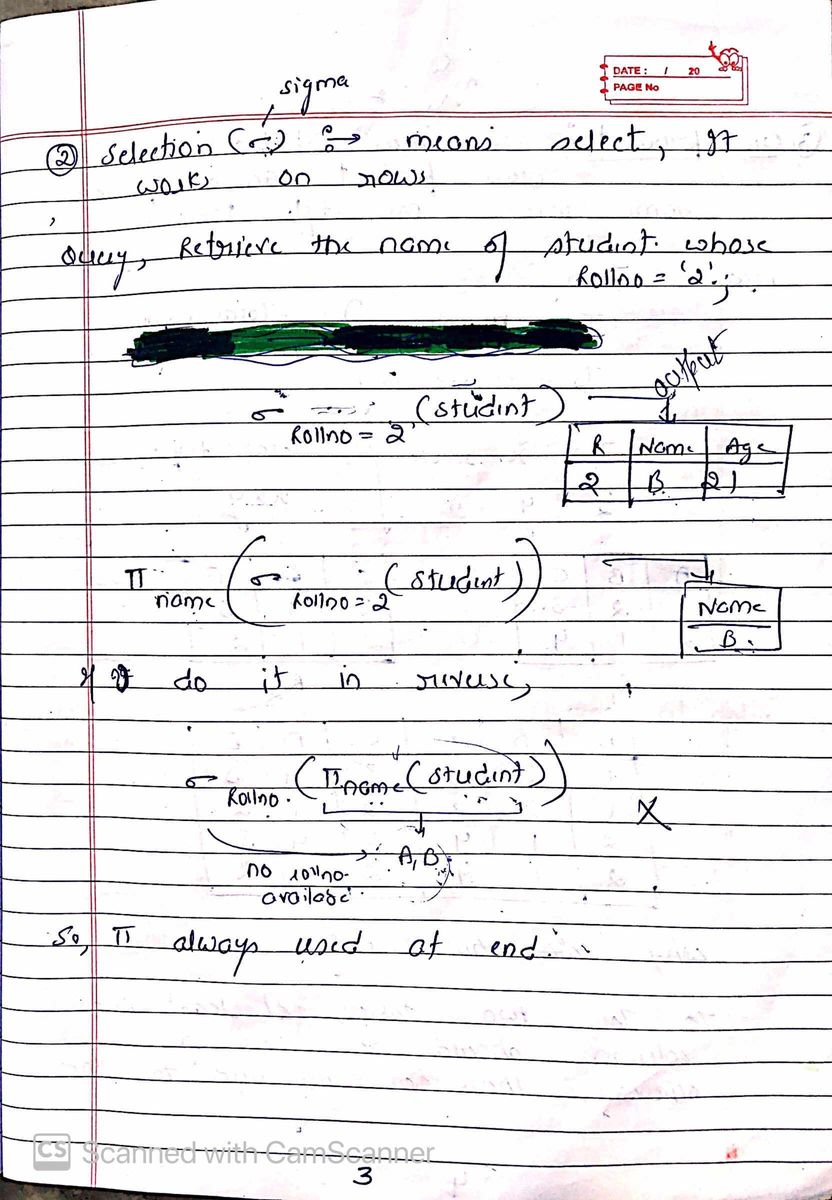 DATE: / 20
PAGE No
sigma
② Selection (σ) :→ means select, It
works on rows.
Query, Retrieve the name of student whose
Rollno = '2';
σ Rollno = 2 (student)
output
R Name Age
2 B 21
π name (σ Rollno = 2 (student))
Name
B.
If do it in reverse,
σ Rollno. (π name (student))
X
A, B
no rollno.
available
So, π always used at end.
CS Scanned with CamScanner
3